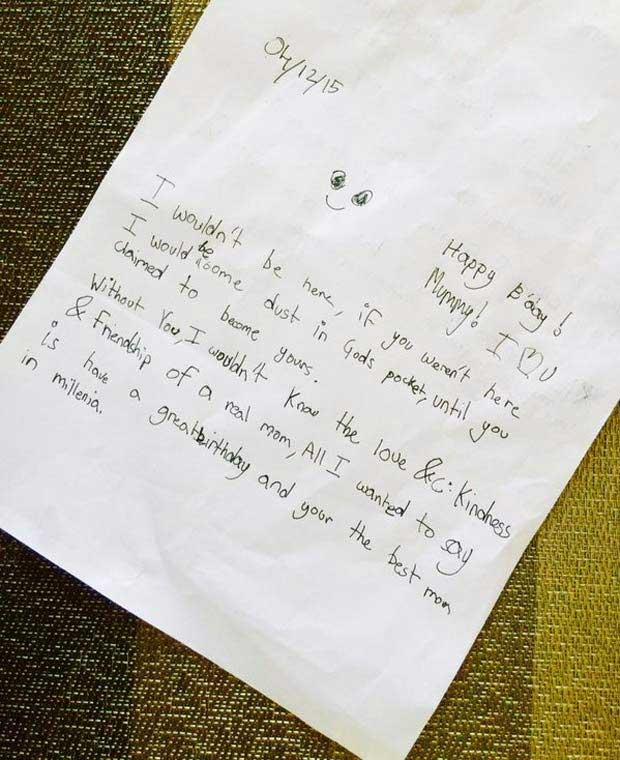 04/12/15
Happy B'day!
Mummy! I ♡ U
I wouldn't be here, if you weren't here
I would be some dust in Gods pocket, until you
claimed to become yours.
Without You, I wouldn't know the love & Kindness
& Friendship of a real mom, All I wanted to say
is have a great birthday and your the best mom
in millenia.